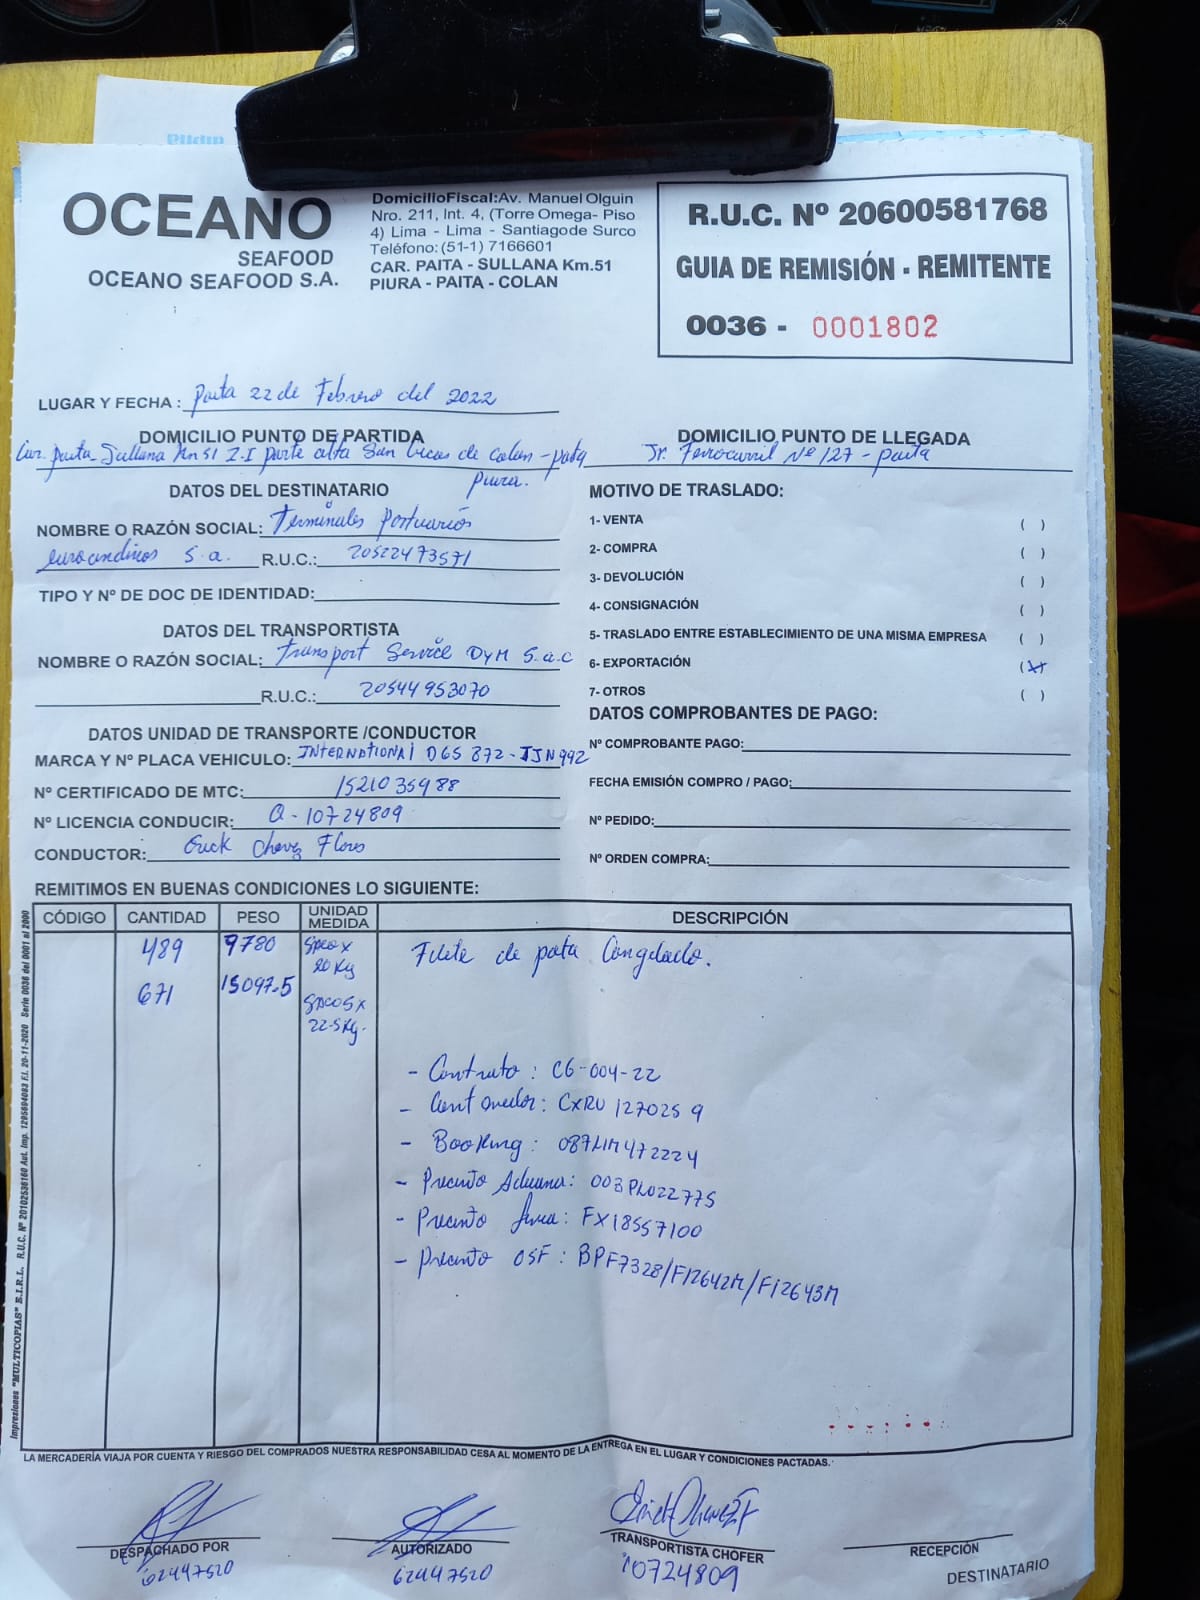 OCEANO
SEAFOOD
OCEANO SEAFOOD S.A.
DomicilioFiscal:Av. Manuel Olguin
Nro. 211, Int. 4, (Torre Omega- Piso
4) Lima - Lima - Santiagode Surco
Teléfono:(51-1) 7166601
CAR. PAITA - SULLANA Km.51
PIURA - PAITA - COLAN
R.U.C. Nº 20600581768
GUIA DE REMISIÓN - REMITENTE
0036 - 0001802
LUGAR Y FECHA : Paita 22 de Febrero del 2022
DOMICILIO PUNTO DE PARTIDA
Car. Paita-Sullana Km 51 Z.I parte alta San Lucas de Colan - paita
Piura.
DOMICILIO PUNTO DE LLEGADA
Jr. Ferrocarril Nº 127 - paita
DATOS DEL DESTINATARIO
NOMBRE O RAZÓN SOCIAL: Terminales Portuarios
euroandinos S.a. R.U.C.: 20522473571
TIPO Y Nº DE DOC DE IDENTIDAD:
DATOS DEL TRANSPORTISTA
NOMBRE O RAZÓN SOCIAL: Transport Service DyM S.a.c
R.U.C.: 20544953070
DATOS UNIDAD DE TRANSPORTE /CONDUCTOR
MARCA Y Nº PLACA VEHICULO: INTERNATIONAL D6S 872 - TJN992
Nº CERTIFICADO DE MTC: 1521035988
Nº LICENCIA CONDUCIR: Q-10724809
CONDUCTOR: Erick Chavez Flores
MOTIVO DE TRASLADO:
1- VENTA ( )
2- COMPRA ( )
3- DEVOLUCIÓN ( )
4- CONSIGNACIÓN ( )
5- TRASLADO ENTRE ESTABLECIMIENTO DE UNA MISMA EMPRESA ( )
6- EXPORTACIÓN (X)
7- OTROS ( )
DATOS COMPROBANTES DE PAGO:
Nº COMPROBANTE PAGO:
FECHA EMISIÓN COMPRO / PAGO:
Nº PEDIDO:
Nº ORDEN COMPRA:
REMITIMOS EN BUENAS CONDICIONES LO SIGUIENTE:
CÓDIGO CANTIDAD PESO UNIDAD MEDIDA DESCRIPCIÓN
489 9780 Saco x 20 Kg Filete de pota Congelado.
671 15097.5 SACOS x 22.5Kg.
- Contrato : CG-004-22
- Contenedor: CXRU 127025 9
- Booking : 087LIM472224
- Precinto Aduana: 003PL022775
- Precinto linea : FX18557100
- Precinto OSF : BPF7328/F12642M/F12643M
Impresiones "MULTICOPIAS" E.I.R.L. R.U.C. Nº 20102536160 Aut. Imp. 1295694083 F.I. 20-11-2020 Serie 0036 del 0001 al 2000
LA MERCADERÍA VIAJA POR CUENTA Y RIESGO DEL COMPRADOS NUESTRA RESPONSABILIDAD CESA AL MOMENTO DE LA ENTREGA EN EL LUGAR Y CONDICIONES PACTADAS.
DESPACHADO POR
62447520
AUTORIZADO
62447520
Erick Chavez F
TRANSPORTISTA CHOFER
10724809
RECEPCIÓN
DESTINATARIO